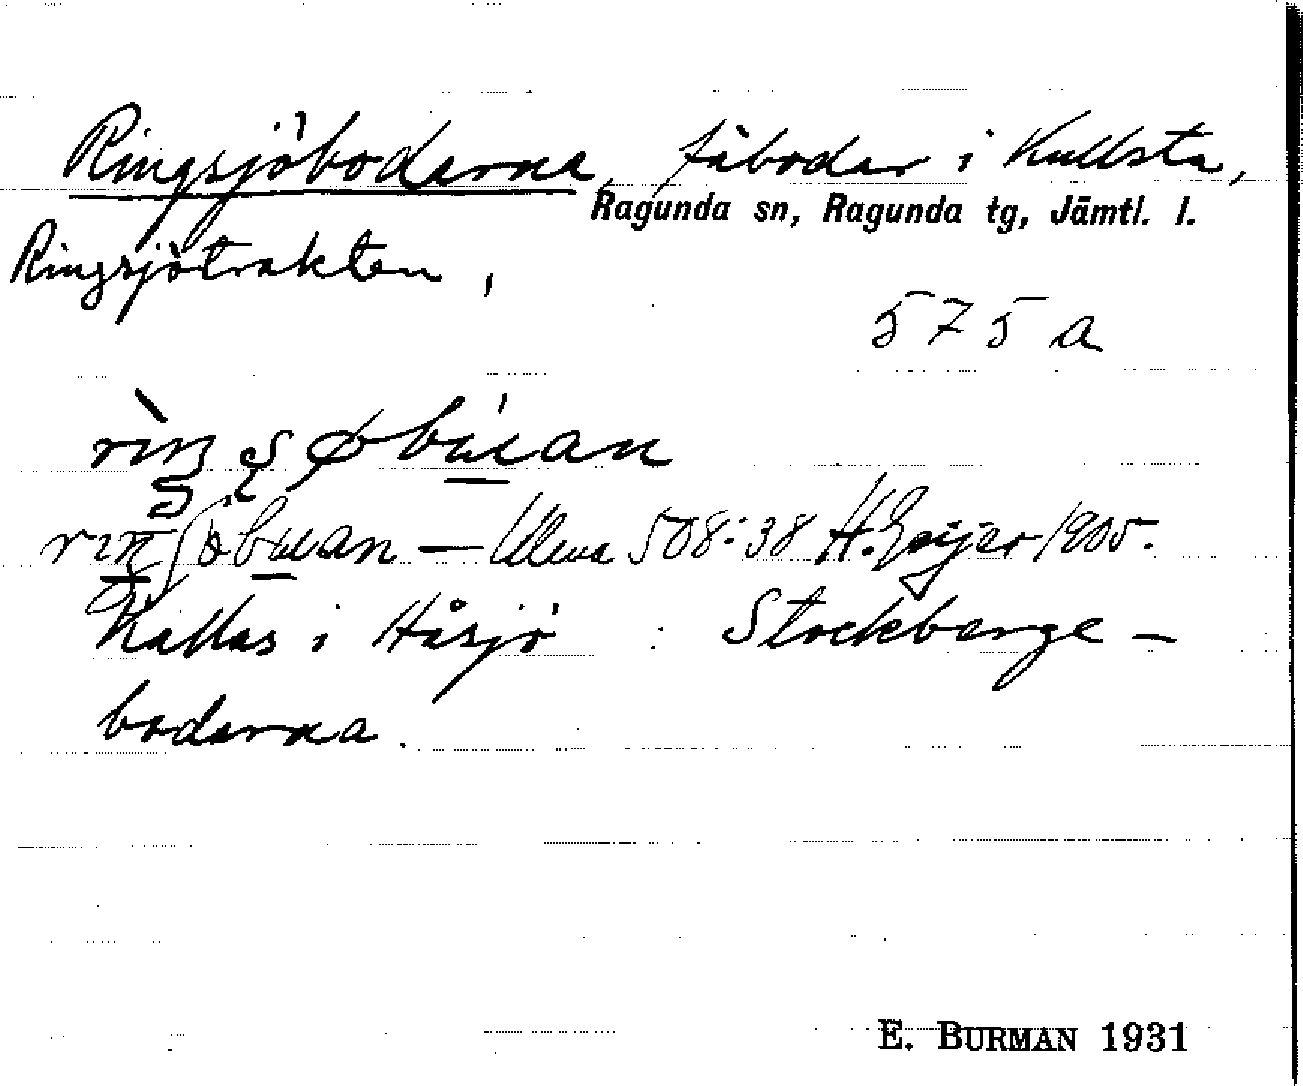 Ringsjöboderna, fäbodar i Kullsta,
Ragunda sn, Ragunda tg, Jämtl. l.
Ringsjötrakten,
575a
— Ulma 508:38 H. Geijer 1905.
Kallas i Håsjö Stockberge-
boderna.
E. BURMAN 1931